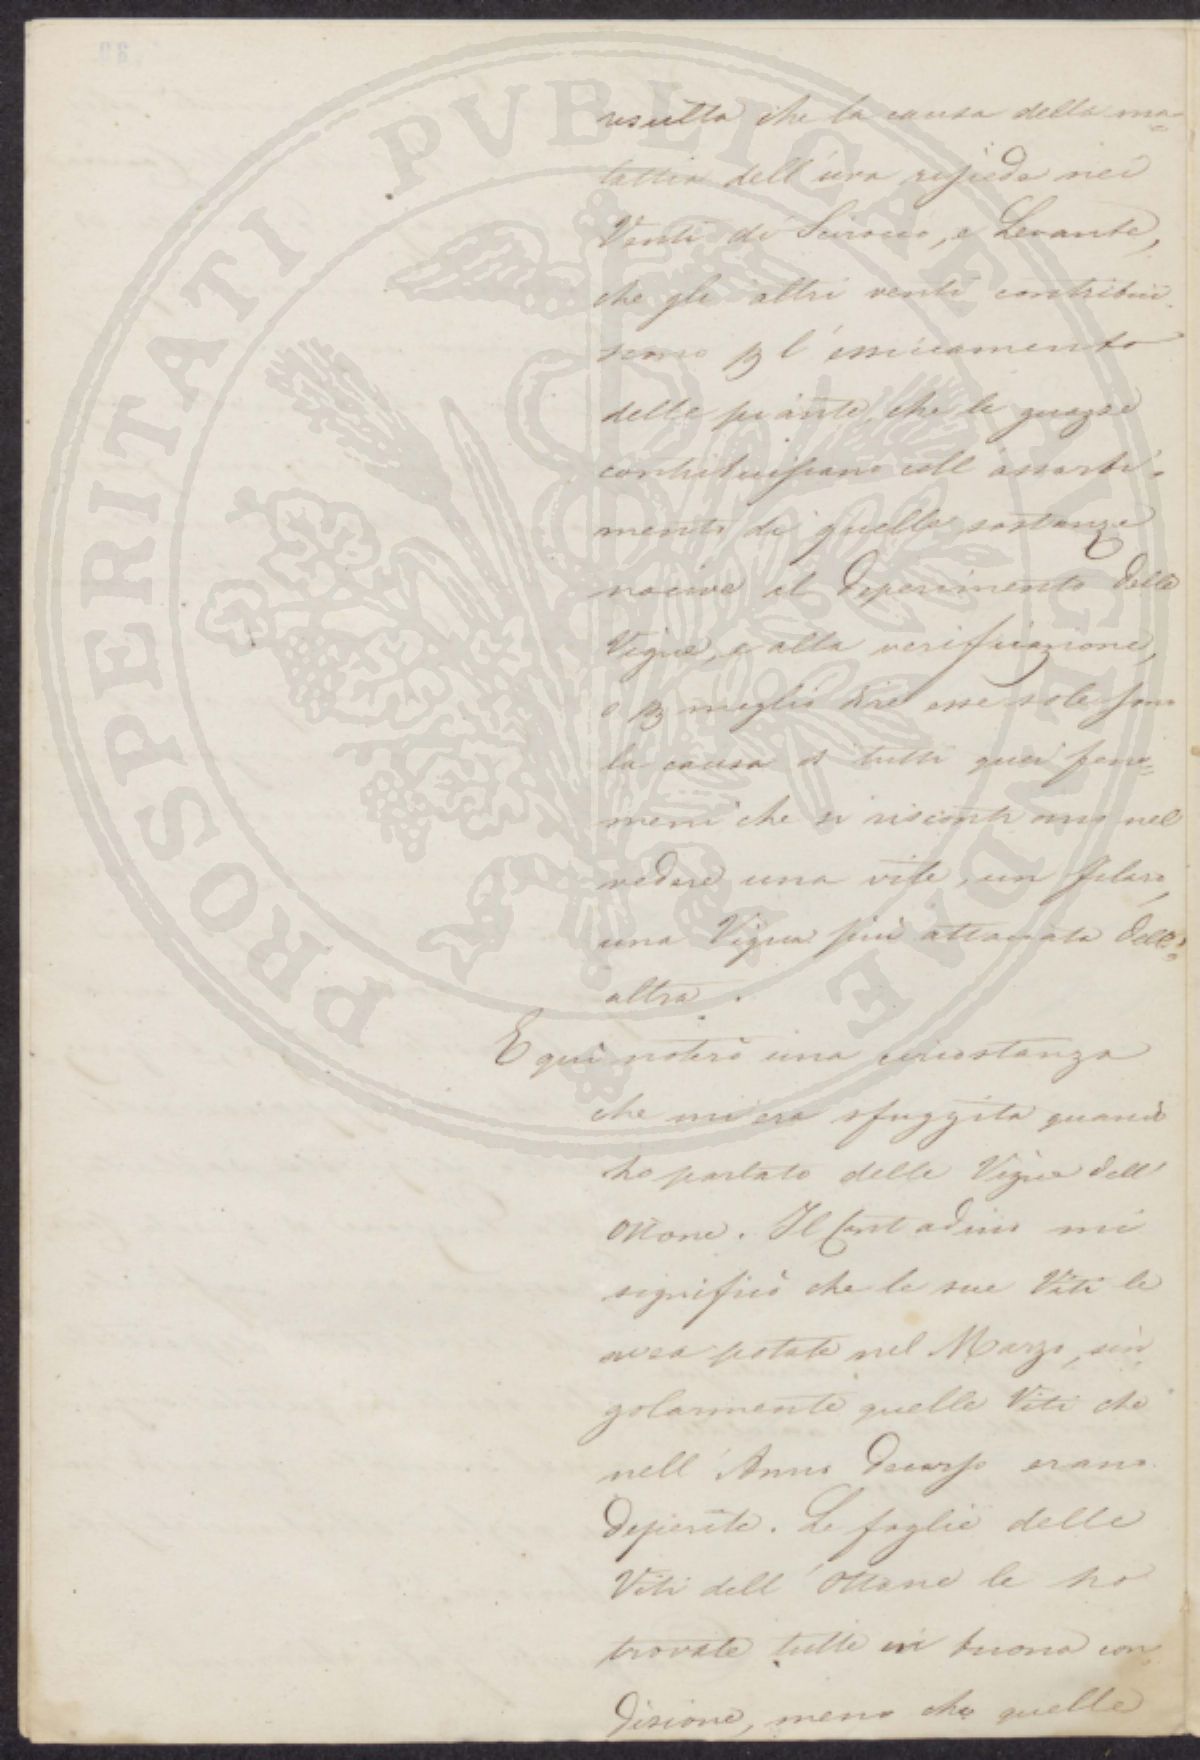 resulta che la causa della ma=
lattia dell'uva risiede nei
Venti di Scirocco, e Levante,
che gli altri venti contribui
scono p l'essiccamento
delle piante, che le guazze
contribuiscono all'assorbi=
mento di quelle sostanze
nocive al deperimento delle
Vigne, e alla verificazione,
o p meglio dire esse sole sono
la causa di tutti quei feno=
meni che si riscontrano nel
vedere una vite, un filare,
una Vigna più attaccata dell'
altra.
E qui noterò una circostanza
che mi era sfuggita quando
ho parlato delle Vigne dell'
Ottone. Il Contadino mi
significò che le sue Viti le
avea potate nel Marzo, sin
golarmente quelle Viti che
nell'Anno decorso erano
deperite. Le foglie delle
Viti dell'Ottone le ho
trovate tutte in buona con
dizione, meno che quelle
PROSPERITATI PUBLICAE AUGENDAE